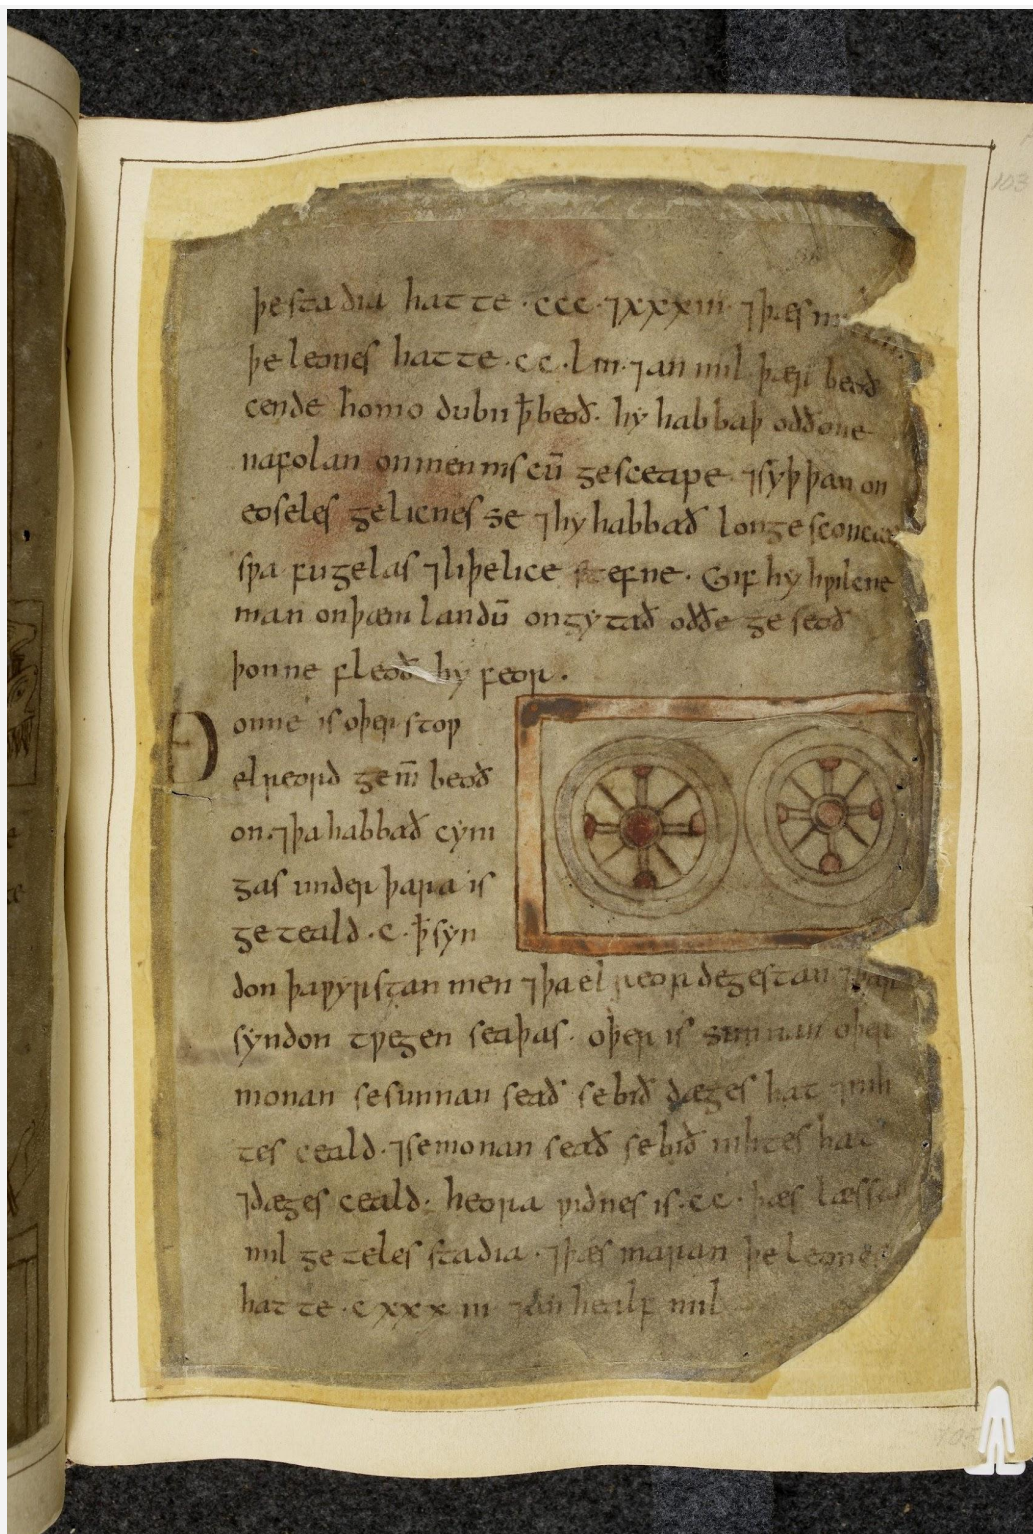 þe stadia hatte · ccc · ⁊ xxxiii · ⁊ þæs
þe leones hatte · cc · liii · ⁊ an mil · þær beoð
cende homo dubii ꝥ beoð · hy habbaþ oððone
nafolan on menniscū gesceape ⁊ syþþan on
eoseles gelicnesse ⁊ hy habbað longe sconcan
swa fugelas ⁊ liþelice stefne · Gif hy hwilcne
man on þæm landū ongytað oððe geseoð
þonne fleoð hy feor ·
Ðonne is oþer stow
elreord ge m̄ beoð
on · ⁊ þa habbað cynin
gas under þara is
geteald · c · ꝥ syn
don þa wyrstan men ⁊ þa elreordegestan ⁊ þær
syndon twegen seaþas · oþer is sunnan oþer
monan se sunnan seað se bið dæges hat ⁊ nih
tes ceald · ⁊ se monan seað se bið nihtes hat
⁊ dæges ceald · heora widnes is · cc · þæs læssan
mil geteles stadia · ⁊ þæs maran þe leones
hatte · cxxxiii ⁊ an healf mil
103